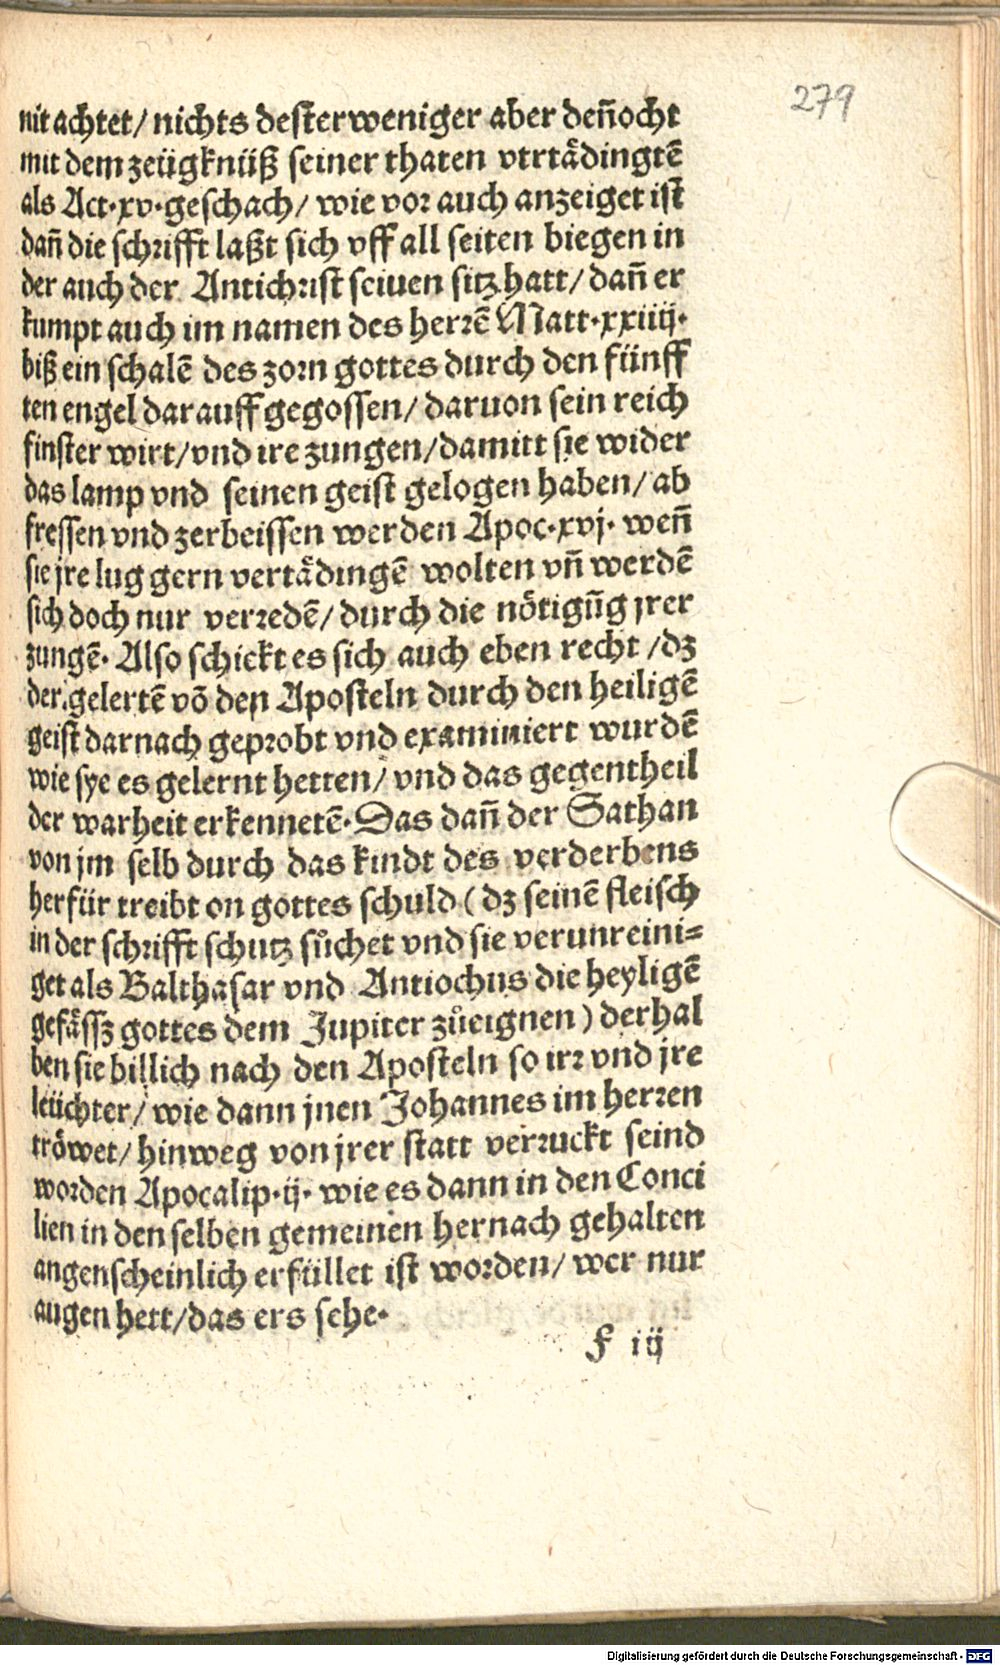 279
nit achtet/ nichts desterweniger aber den̄ocht
mit dem zeügknüß seiner thaten vtrtådingtē
als Act·xv·geschach/ wie vor auch anzeiget ist
dan̄ die schrifft laßt sich vff all seiten biegen in
der auch der Antichrist seiuen sitz hatt/ dan̄ er
kumpt auch im namen des herrē Matt·xxiiij·
biß ein schalē des zorn gottes durch den fünff
ten engel darauff gegossen/ daruon sein reich
finster wirt/vnd ire zungen/damitt sie wider
das lamp vnd seinen geist gelogen haben/ ab
fressen vnd zerbeissen werden Apoc·xvj· wen̄
sie jre lug gern vertådingē wolten vn̄ werdē
sich doch nur verredē/ durch die nötigūg jrer
zungē· Also schickt es sich auch eben recht /dz
der gelertē vō den Aposteln durch den heiligē
geist darnach geprobt vnd examiniert wurdē
wie sye es gelernt hetten/ vnd das gegentheil
der warheit erkennetē·Das dan̄ der Sathan
von jm selb durch das kindt des verderbens
herfür treibt on gottes schuld ( dz seinē fleisch
in der schrifft schutz sůchet vnd sie verunreini=
get als Balthasar vnd Antiochus die heyligē
gefåssz gottes dem Jupiter zůeignen ) derhal
ben sie billich nach den Aposteln so irr vnd jre
leüchter/ wie dann jnen Johannes im herren
tröwet/ hinweg von jrer statt verruckt seind
worden Apocalip·ij· wie es dann in den Conci
lien in den selben gemeinen hernach gehalten
angenscheinlich erfüllet ist worden/ wer nur
augen hett/das ers sehe·
F iij
Digitalisierung gefördert durch die Deutsche Forschungsgemeinschaft - DFG